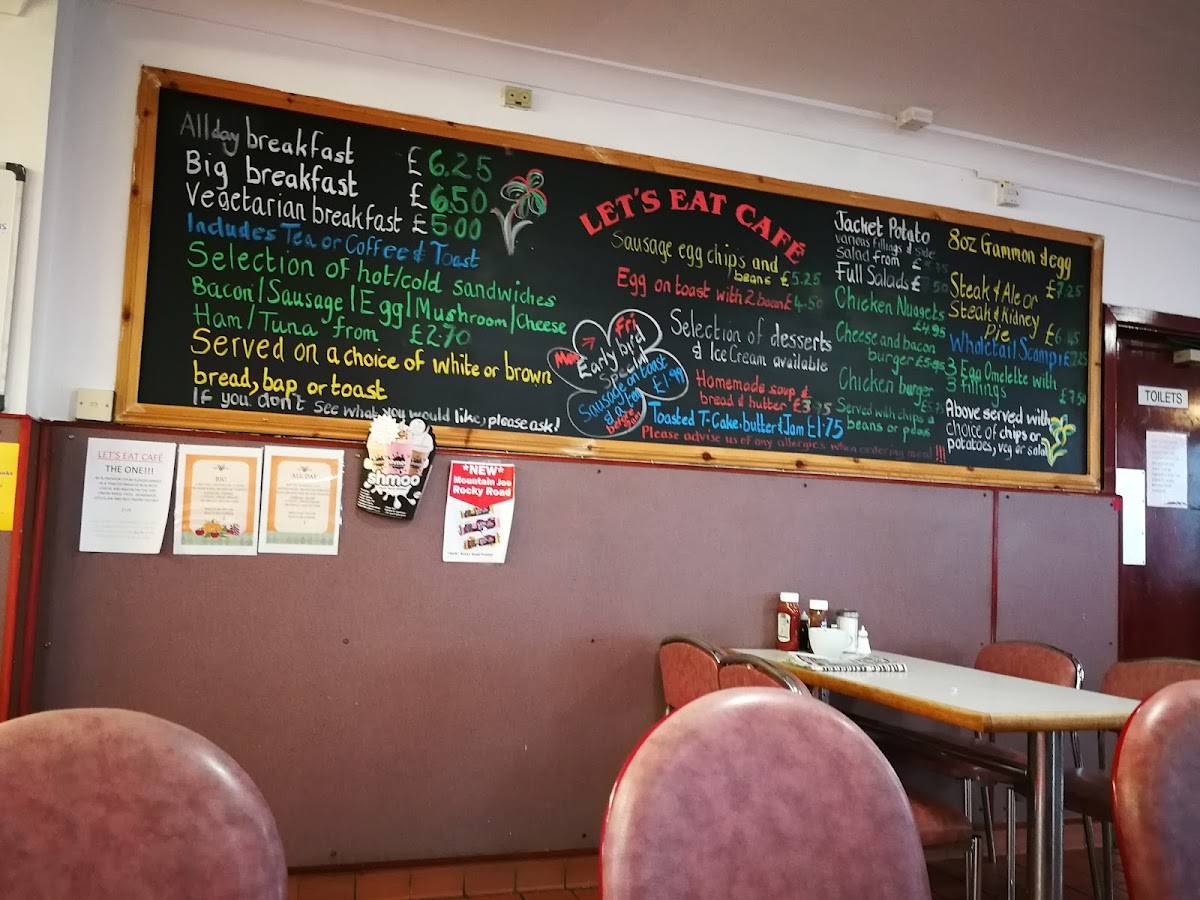 All day breakfast £6.25
Big breakfast £6.50
Vegetarian breakfast £5.00
Includes Tea or Coffee & Toast
Selection of hot/cold sandwiches
Bacon/Sausage/Egg/Mushroom/Cheese
Ham/Tuna from £2.70
Served on a choice of white or brown
bread, bap or toast
If you don't see what you would like, please ask!
LET'S EAT CAFÉ
Sausage egg chips and
beans £5.25
Egg on toast with 2 bacon £4.50
Mon → Fri
Early bird
Special
Sausage on toast
& a tea
£1.99
before
Selection of desserts
& Ice Cream available
Homemade soup &
bread & butter £3.75
Toasted T-Cake, butter & Jam £1.75
Please advise us of any allergies when ordering meal !!!
Jacket Potato
various fillings & side
Salad from £
Full Salads £ 50
Chicken Nuggets
£4.95
Cheese and bacon
burger
Chicken burger
Served with chips &
beans or peas
8oz Gammon & egg
£7.25
Steak & Ale or
Steak & Kidney
Pie £6.45
Wholetail Scampi £7.25
3 Egg Omelette with
3 fillings £7.50
Above served with
choice of chips or
potatoes, veg or salad
TOILETS
LET'S EAT CAFÉ
THE ONE!!!
BIG
ALL DAY
shmoo
*NEW*
Mountain Joe
Rocky Road